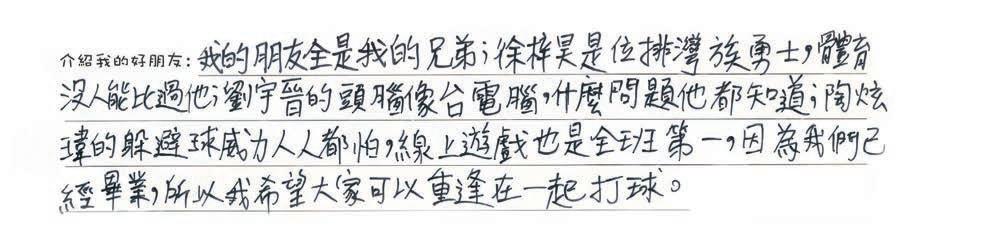 介紹我的好朋友：我的朋友全是我的兄弟；徐梓昊是位排灣族勇士，體育
沒人能比過他；劉宇晉的頭腦像台電腦，什麼問題他都知道；陶炫
瑋的躲避球威力人人都怕，線上遊戲也是全班第一，因為我們已
經畢業，所以我希望大家可以重逢在一起打球。